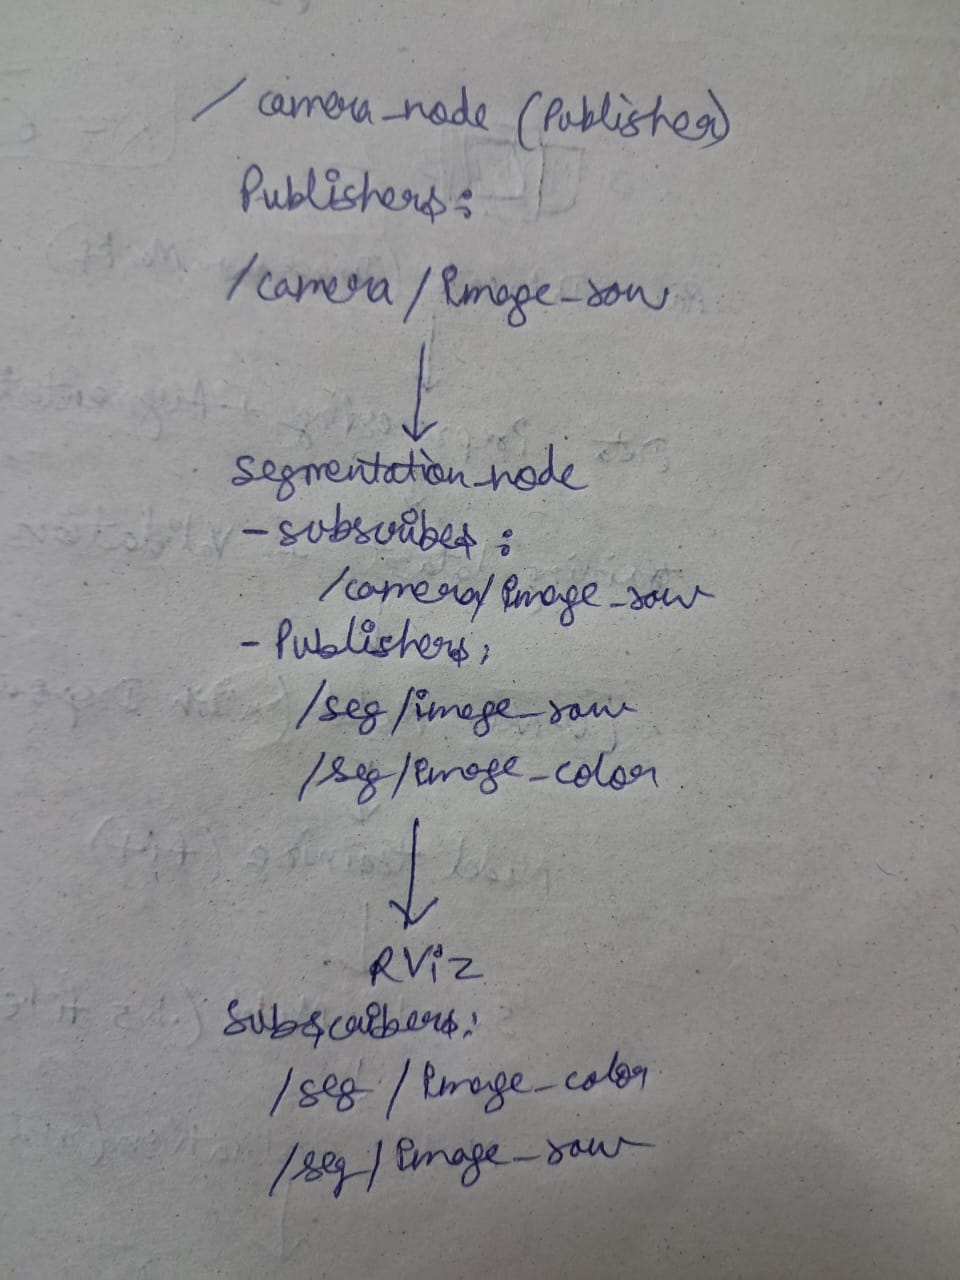 /camera_node (Publisher)
Publishers:
/camera/Image_raw
segmentation_node
- subscribes:
/camera/Image_raw
- Publishers:
/seg/image_raw
/seg/Image_color
RViz
Subscribers:
/seg/Image_color
/seg/Image_raw